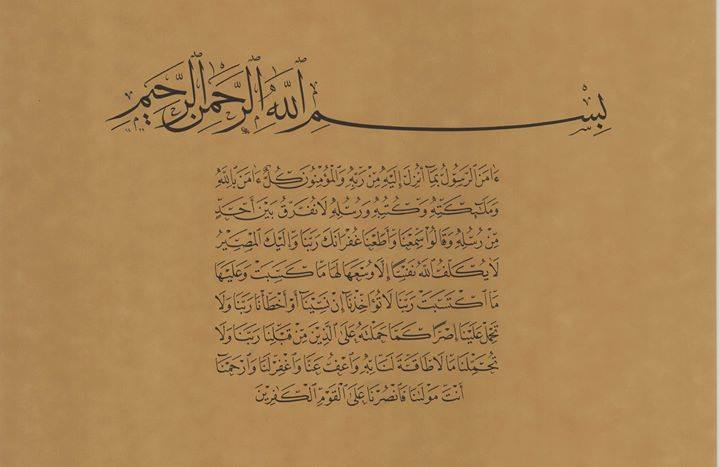 بِسْمِ ٱللَّهِ ٱلرَّحْمَٰنِ ٱلرَّحِيمِ
ءَامَنَ ٱلرَّسُولُ بِمَآ أُنزِلَ إِلَيْهِ مِن رَّبِّهِۦ وَٱلْمُؤْمِنُونَ كُلٌّ ءَامَنَ بِٱللَّهِ
وَمَلَٰٓئِكَتِهِۦ وَكُتُبِهِۦ وَرُسُلِهِۦ لَا نُفَرِّقُ بَيْنَ أَحَدٍ
مِّن رُّسُلِهِۦ وَقَالُوا۟ سَمِعْنَا وَأَطَعْنَا غُفْرَانَكَ رَبَّنَا وَإِلَيْكَ ٱلْمَصِيرُ
لَا يُكَلِّفُ ٱللَّهُ نَفْسًا إِلَّا وُسْعَهَا لَهَا مَا كَسَبَتْ وَعَلَيْهَا
مَا ٱكْتَسَبَتْ رَبَّنَا لَا تُؤَاخِذْنَآ إِن نَّسِينَآ أَوْ أَخْطَأْنَا رَبَّنَا وَلَا
تَحْمِلْ عَلَيْنَآ إِصْرًا كَمَا حَمَلْتَهُۥ عَلَى ٱلَّذِينَ مِن قَبْلِنَا رَبَّنَا وَلَا
تُحَمِّلْنَا مَا لَا طَاقَةَ لَنَا بِهِۦ وَٱعْفُ عَنَّا وَٱغْفِرْ لَنَا وَٱرْحَمْنَآ
أَنتَ مَوْلَىٰنَا فَٱنصُرْنَا عَلَى ٱلْقَوْمِ ٱلْكَٰفِرِينَ